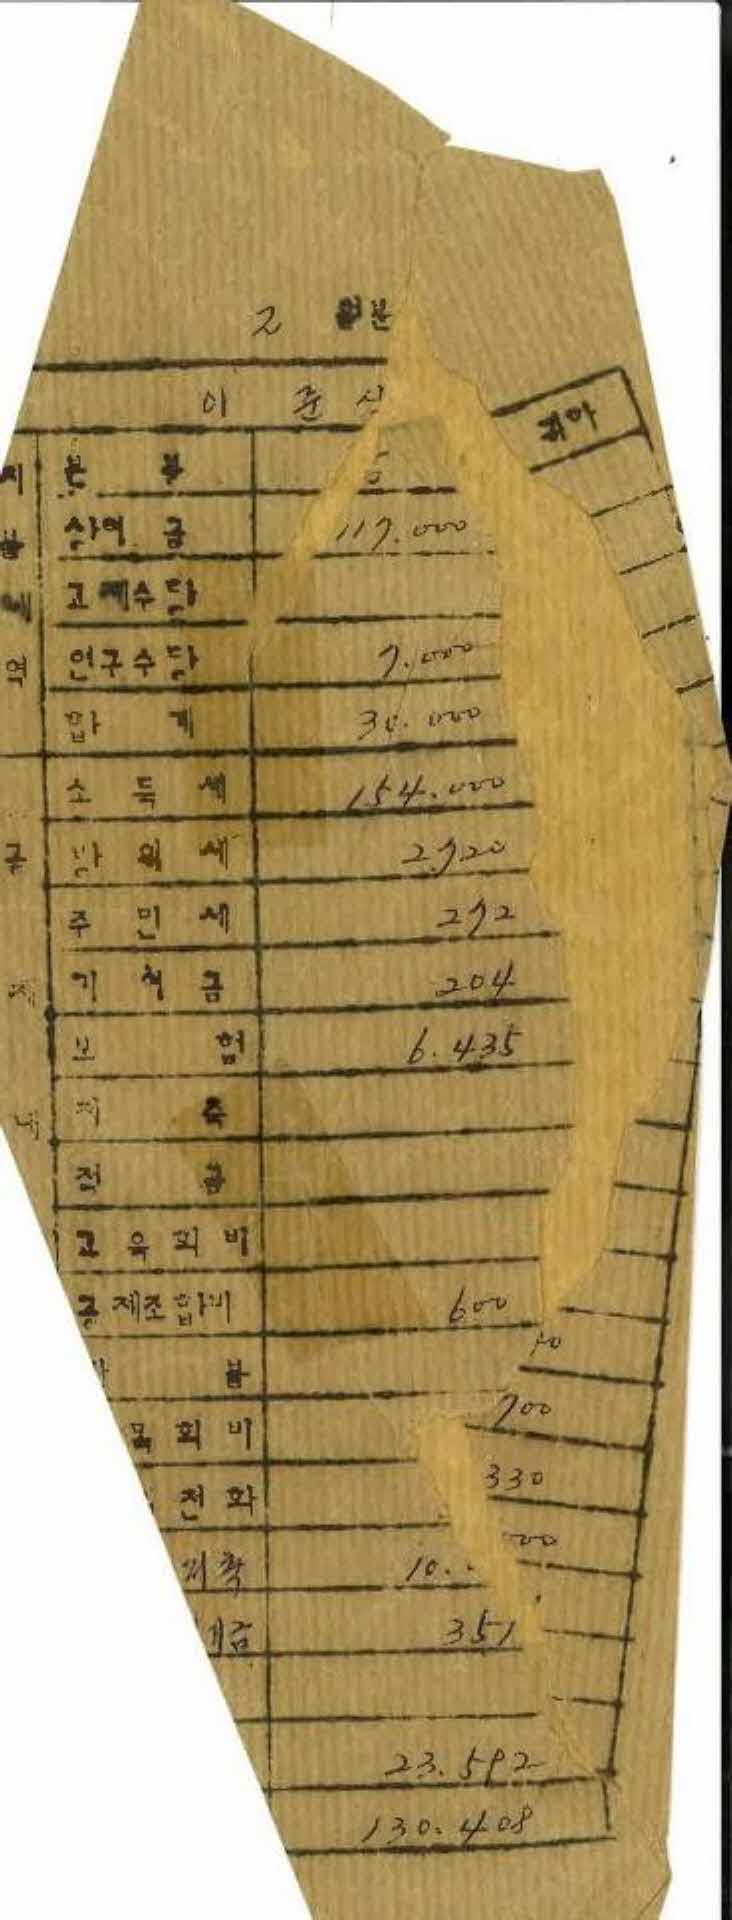 2 월분
이 준
귀하
지 본 봉
상여 금 117.000
고 수당
역 연구수당 7.000
합 계 30.000
소 득 세 154.000
방 위 세 2.720
주 민 세 272
기 금 204
보 험 6.435
저 축
전 금
교 육 회 비
공제조합비 600
70
봉
목 회 비 700
전 화 330
저축 10. 000
세금 351
23.592
130.408